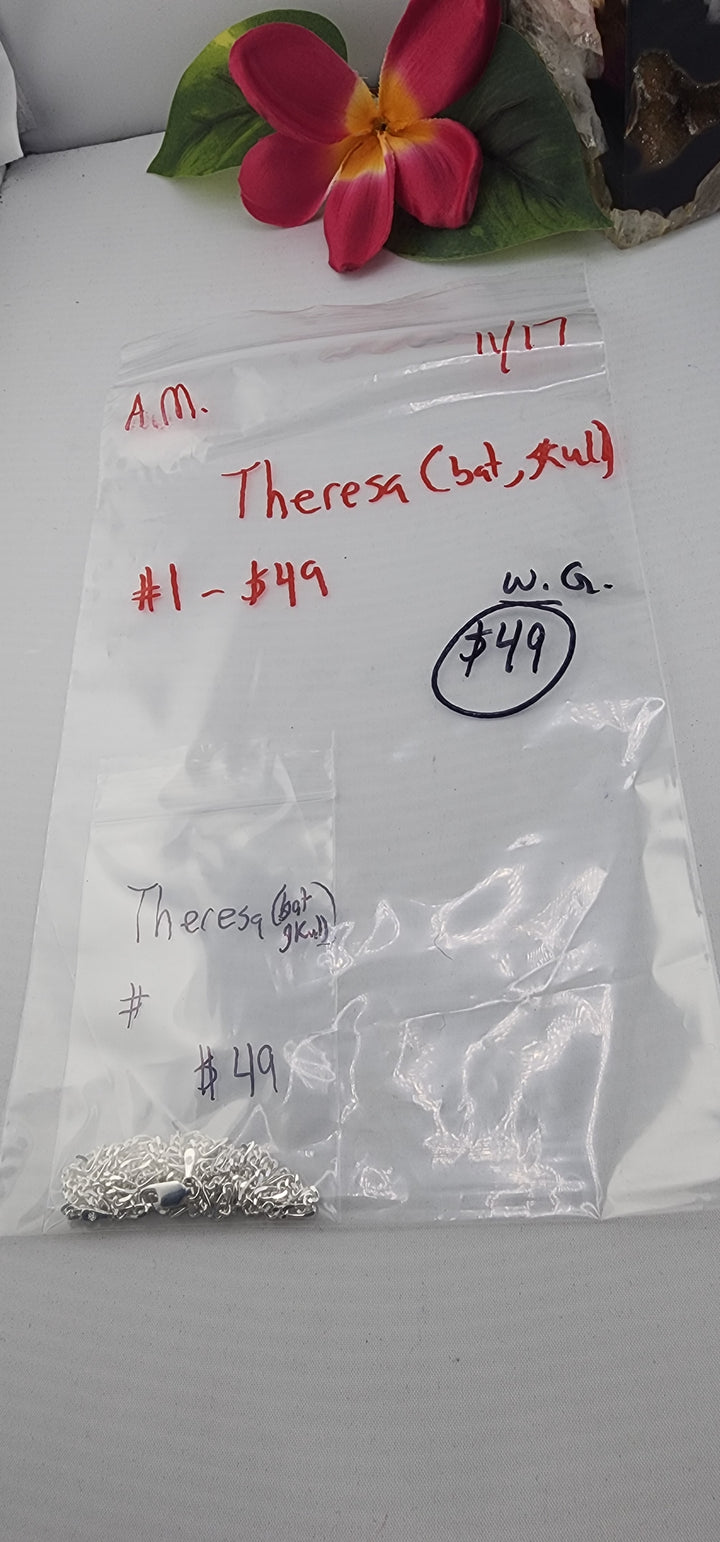 11/17
A.M.
Theresa (bat, skull)
#1 - $49
W.G.
$49
Theresa (bat
skull)
#
$49